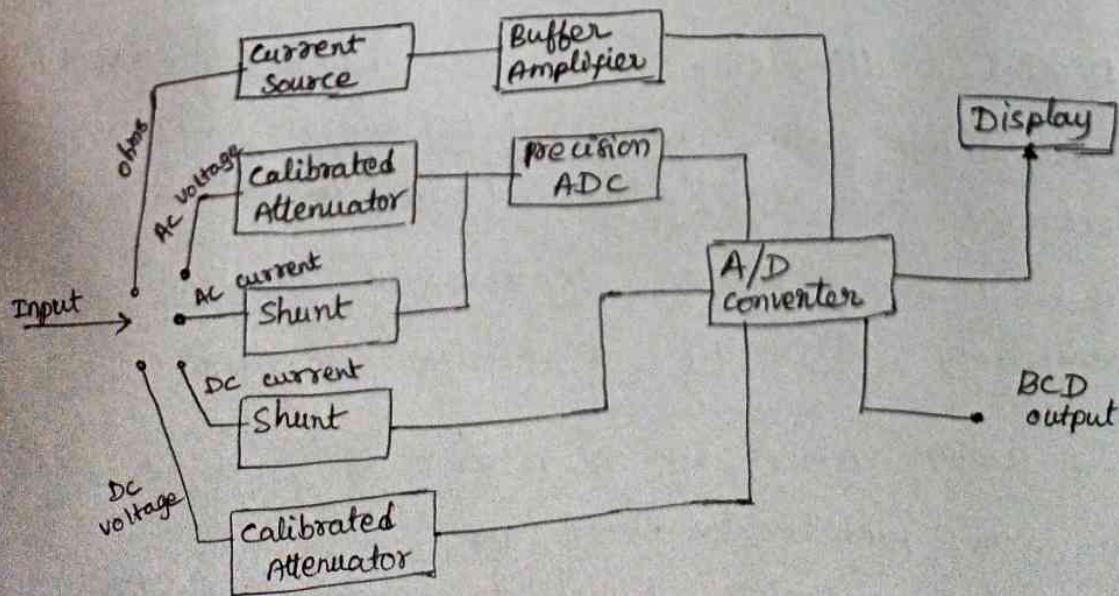 Current
Source
Buffer
Amplifier
Display
ohms
AC voltage
Calibrated
Attenuator
Precision
ADC
AC current
Input
Shunt
A/D
Converter
DC current
Shunt
BCD
output
DC
voltage
Calibrated
Attenuator